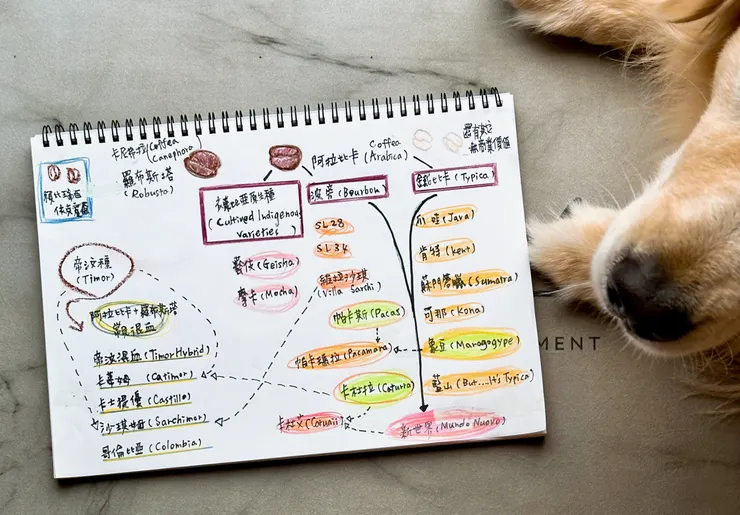 卡尼弗拉Coffea
Canephora
羅布斯塔
(Robusta)
阿拉比卡 Coffea
(Arabica)
還有其它
無商業價值
衣索比亞原生種
(Cultived Indigenous
Varieties)
波旁 (Bourbon)
鐵比卡 (Typica)
SL28
SL34
藝伎(Geisha)
摩卡(Mocha)
維拉沙琪
(Villa Sarchi)
帕卡斯(Pacas)
帕卡瑪拉(Pacamara)
卡杜拉(Caturra)
卡杜艾(Catuaii)
爪哇(Java)
肯特(Kent)
蘇門答臘(Sumatra)
可那(Kona)
象豆(Maragogype)
藍山(But...It's Typica)
新世界(Mundo Nuovo)
帝汶種
(Timor)
阿拉比卡+羅布斯塔
帝汶混血(Timor Hybrid)
卡蒂姆 (Catimor)
卡士提優(Castillo)
沙琪姆(Sarchimor)
哥倫比亞(Colombia)
MENT